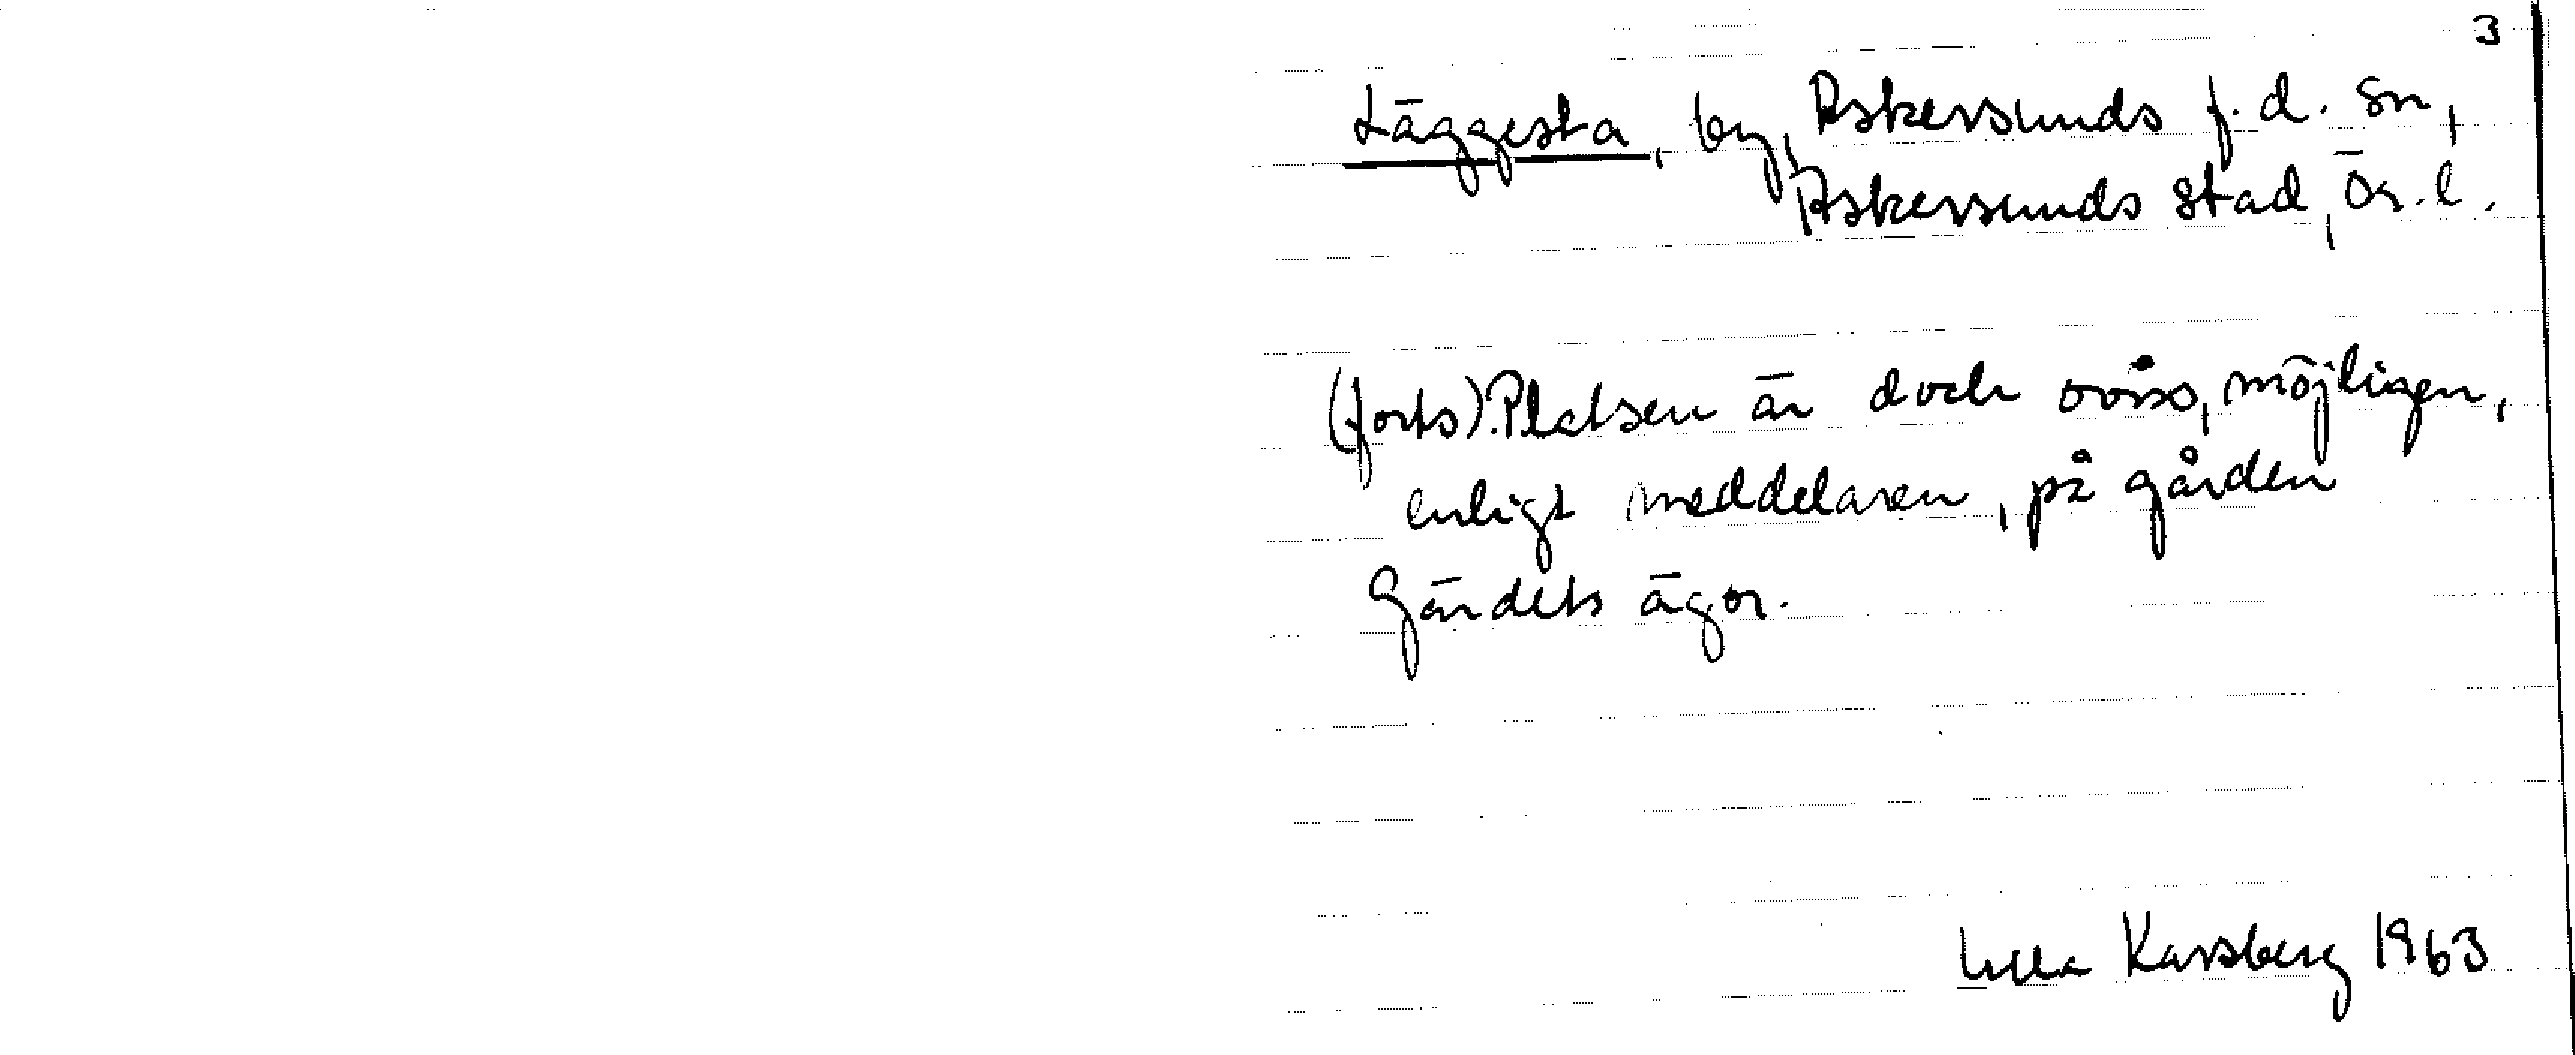 3
Läggesta, by, Askersunds f.d. sn,
Askersunds stad, Ör. l.
(forts). Platsen är dock oviss, möjligen,
enligt meddelaren, på gården
Gärdets ägor.
Ulla Karsberg 1963